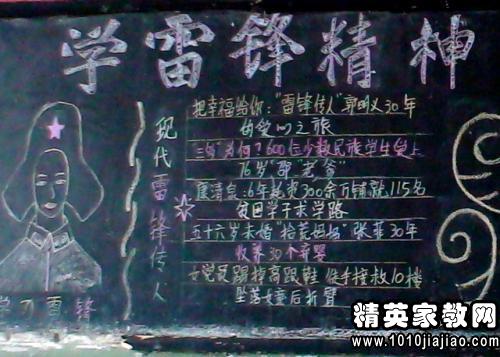 学雷锋精神
把幸福给你:"雷锋传人"郭明义30年
的爱心之旅
600位少数民族学生爱上
76岁"邵"老爹
:6年 资300余万铺就115名
贫困学子求学路
五十六岁未婚"拾荒妈妈"张菲30年
收养30个弃婴
女党员踢掉高跟鞋 徒手接救10楼
坠落女童后折臂
现代雷锋传人
学习雷锋
精英家教网
www.1010jiajiao.com